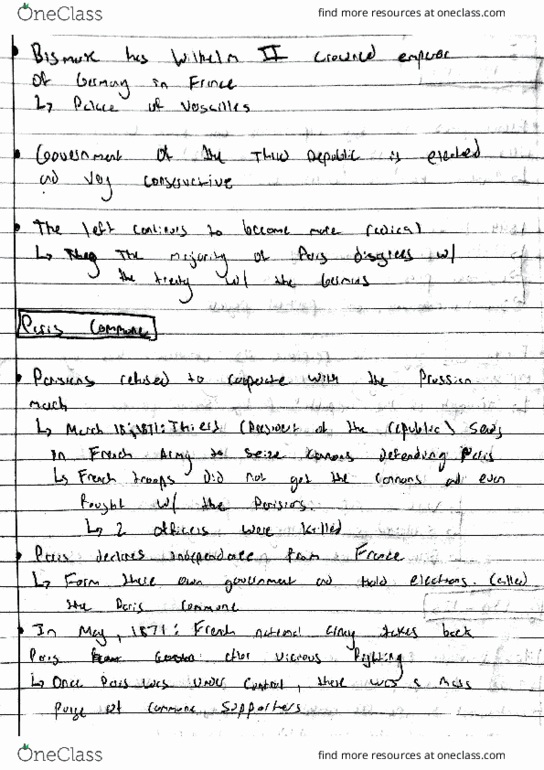 OneClass
find more resources at oneclass.com
• Bismark has Wilhelm II crowned emperor
of Germany in France
↳ Palace of Versailles
• Government of the Third Republic is elected
and very conservative
• The left continues to become more radical
↳ The majority of Paris disagrees w/
the treaty w/ the Germans
Paris Commune
• Parisians refused to cooperate with the Prussian
march
↳ March 18, 1871: Thiers (President of the republic) sends
in French Army to seize cannons defending Paris
↳ French troops did not get the cannons and even
fought w/ the Parisians.
↳ 2 officers were killed
• Paris declares independence from France
↳ Form there own government and hold elections. Called
the Paris Commune
• In May, 1871: French national army takes back
Paris after vicious fighting
↳ Once Paris was under control, there was a mass
purge of Commune Supporters
OneClass
find more resources at oneclass.com